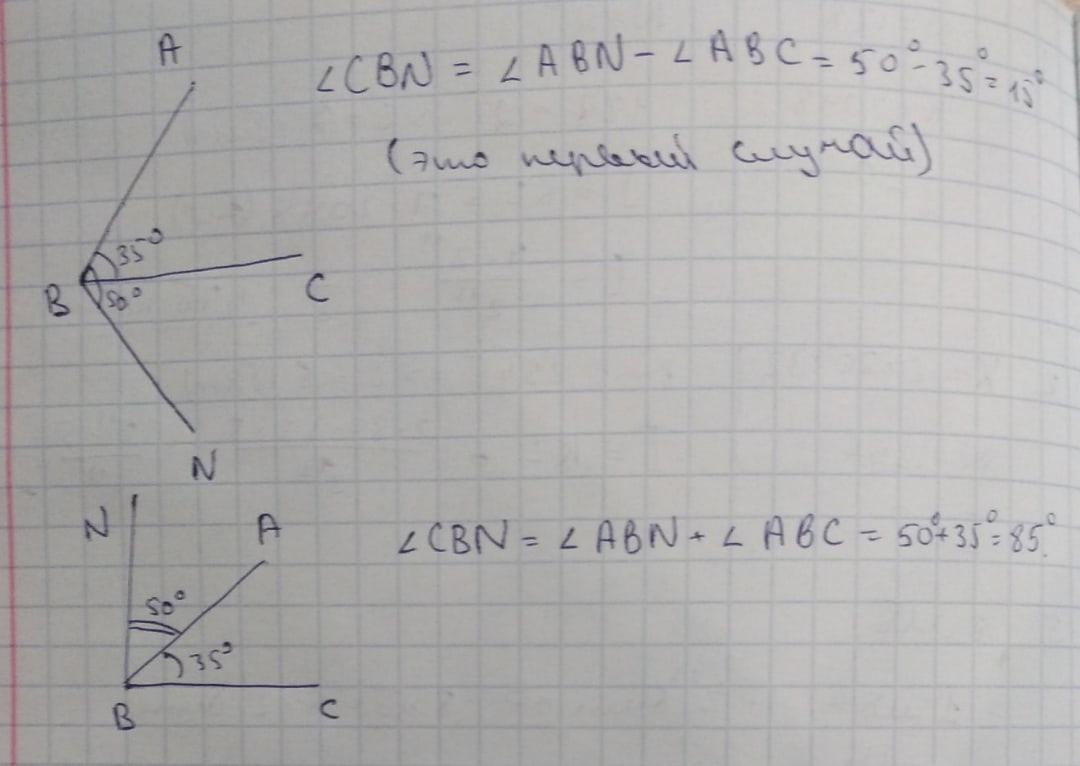 A
∠CBN = ∠ABN - ∠ABC = 50° - 35° = 15°
(это первый случай)
35°
B
50°
C
N
N
A
∠CBN = ∠ABN + ∠ABC = 50°+35°=85°.
50°
35°
B
C